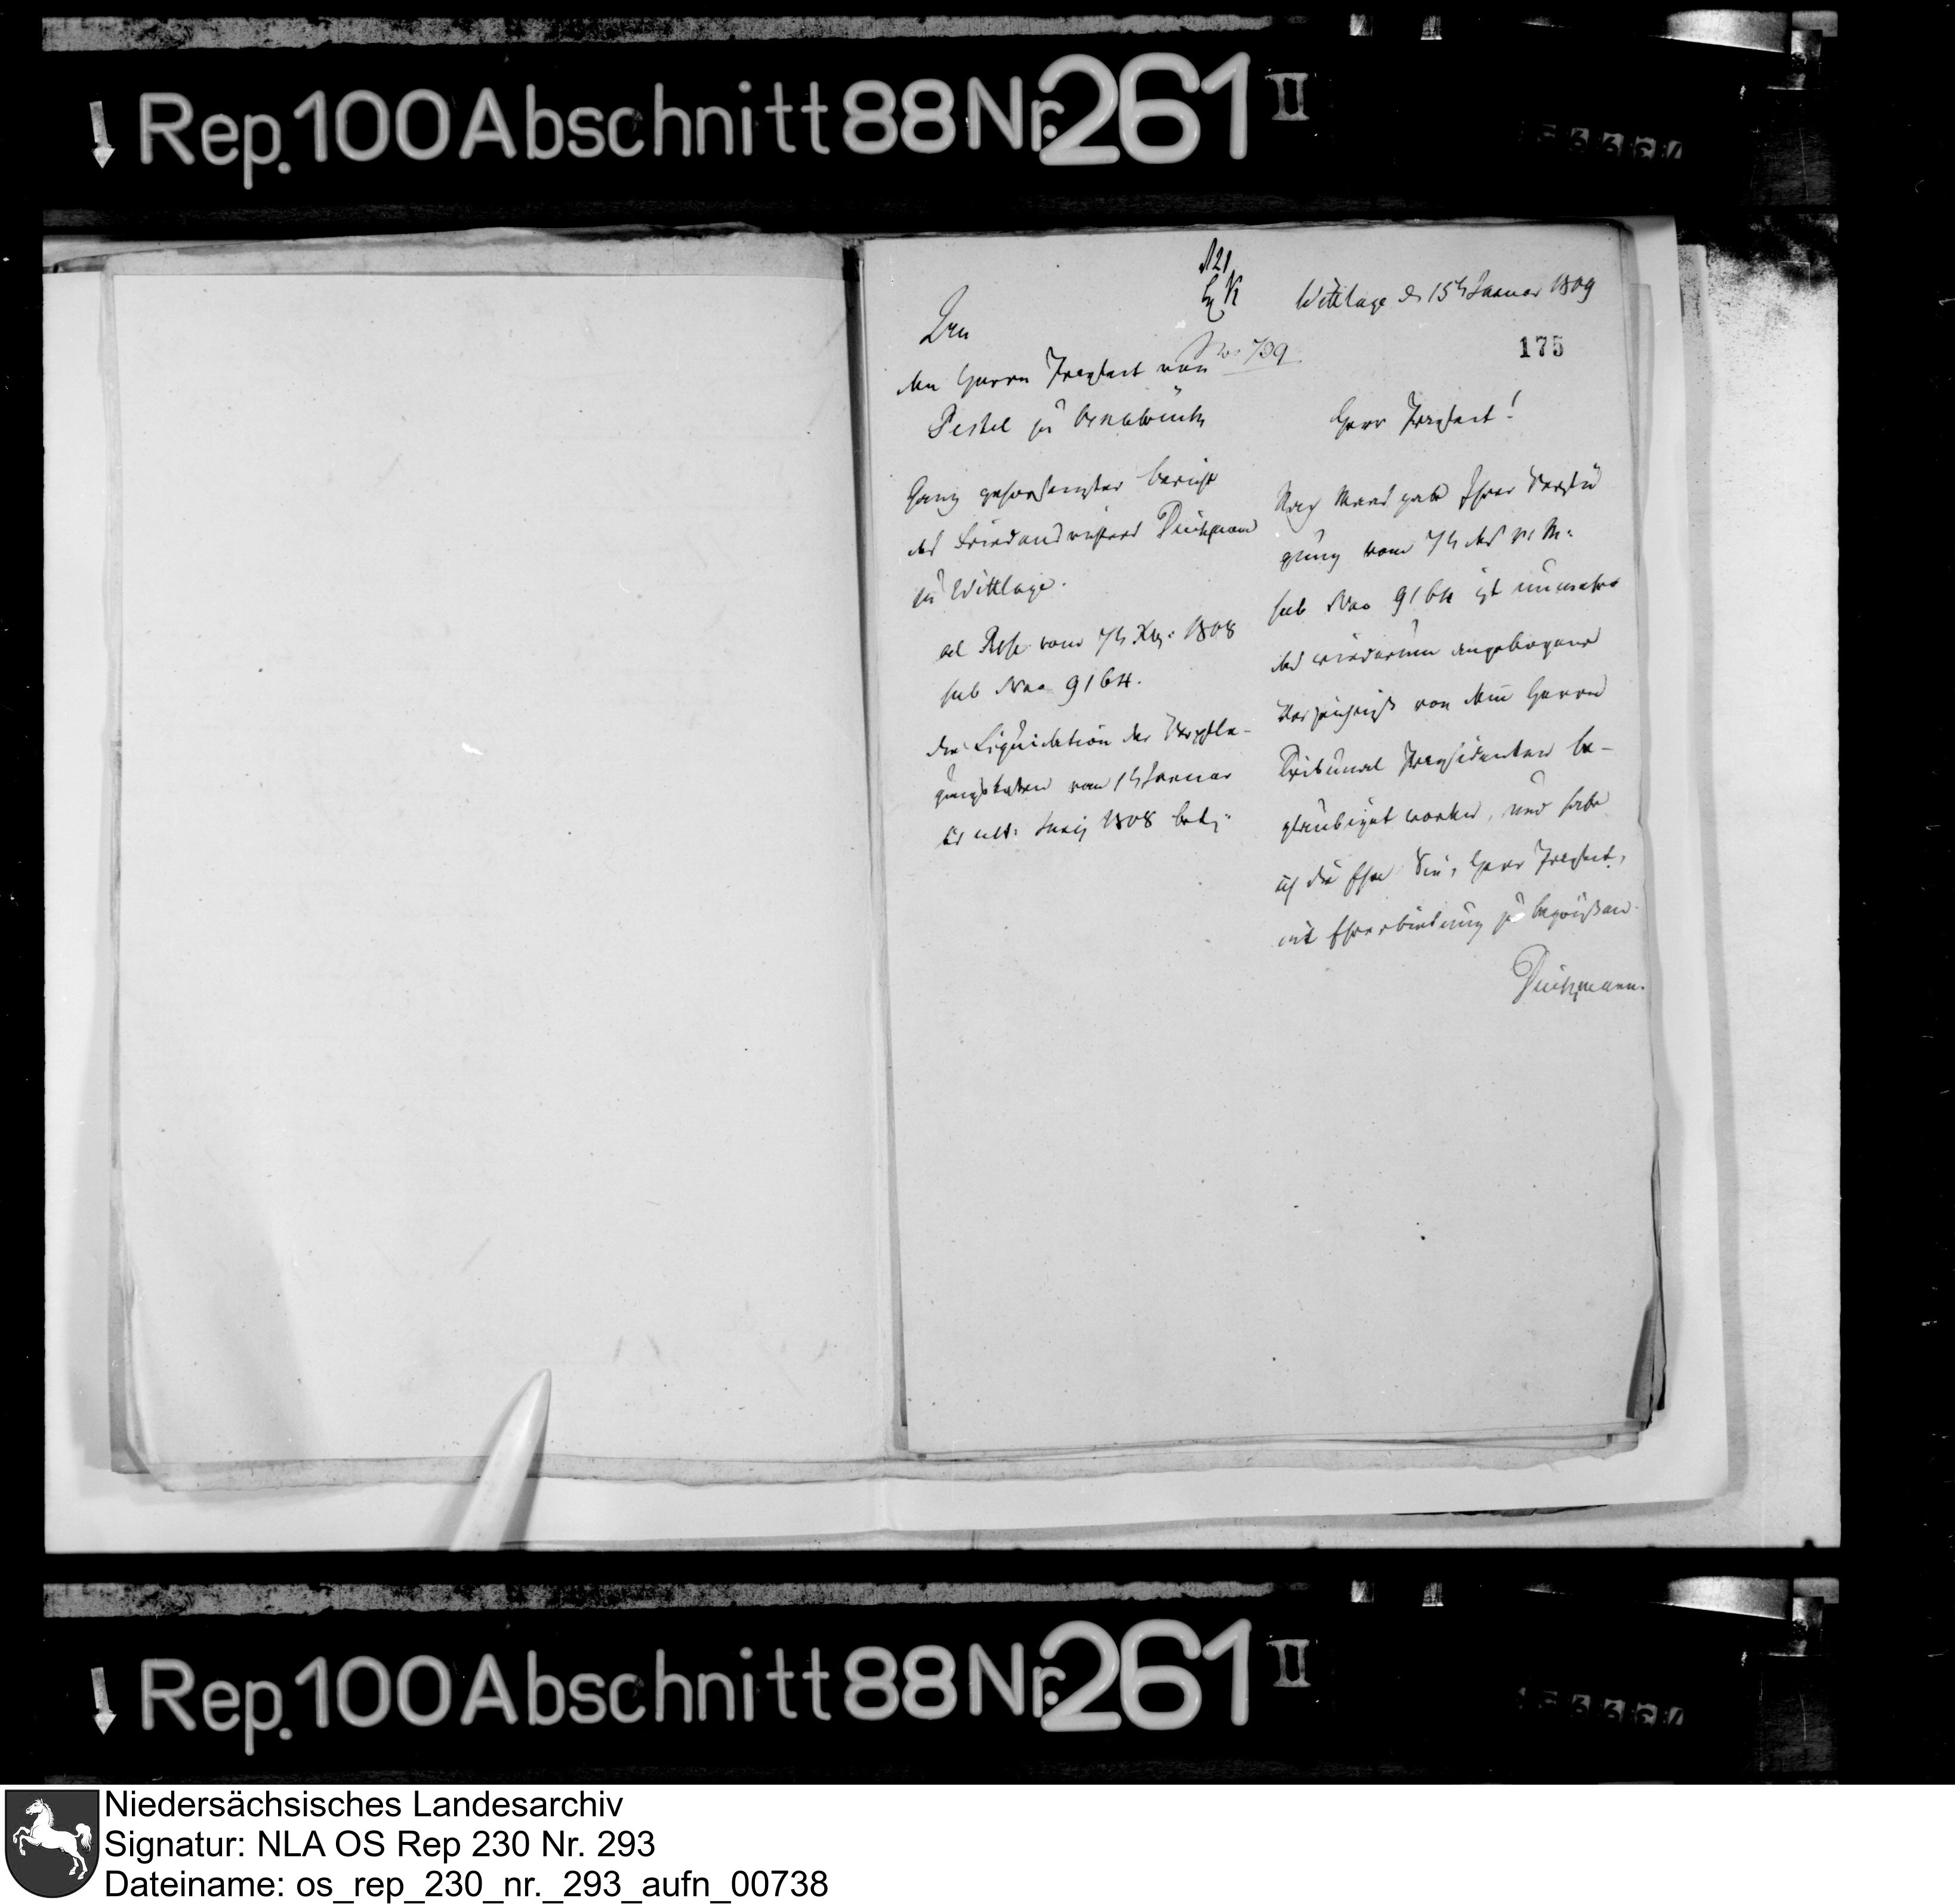 Rep. 100 Abschnitt 88 Nr. 261 II
Wittlage d 15t Januar 1809
No 739
175
An
den Herrn Praefect von
Pestel zu Osnabrück
Ganz gehorsamster Bericht
des Friedensrichters
zu Wittlage.
ad Rescr. vom 7t Xbr: 1808
sub Nro 9164.
die Liquidation der Verpfle-
gungskosten vom 1t Januar
bis ult: Juny 1808 betr:
Herr Praefect!
Nach Maas gabe Ihrer Verfü
gung vom 7t des v: M:
sub Nro 9164 ist nunmehro
das wiederum angebogene
Verzeichniß von dem Herrn
Tribunal Praesidenten be-
glaubiget worden, und habe
ich die Ehre Sie, Herr Praefect,
mit Ehrerbietung zu begrüßen.
Rep. 100 Abschnitt 88 Nr. 261 II
Niedersächsisches Landesarchiv
Signatur: NLA OS Rep 230 Nr. 293
Dateiname: os_rep_230_nr._293_aufn_00738